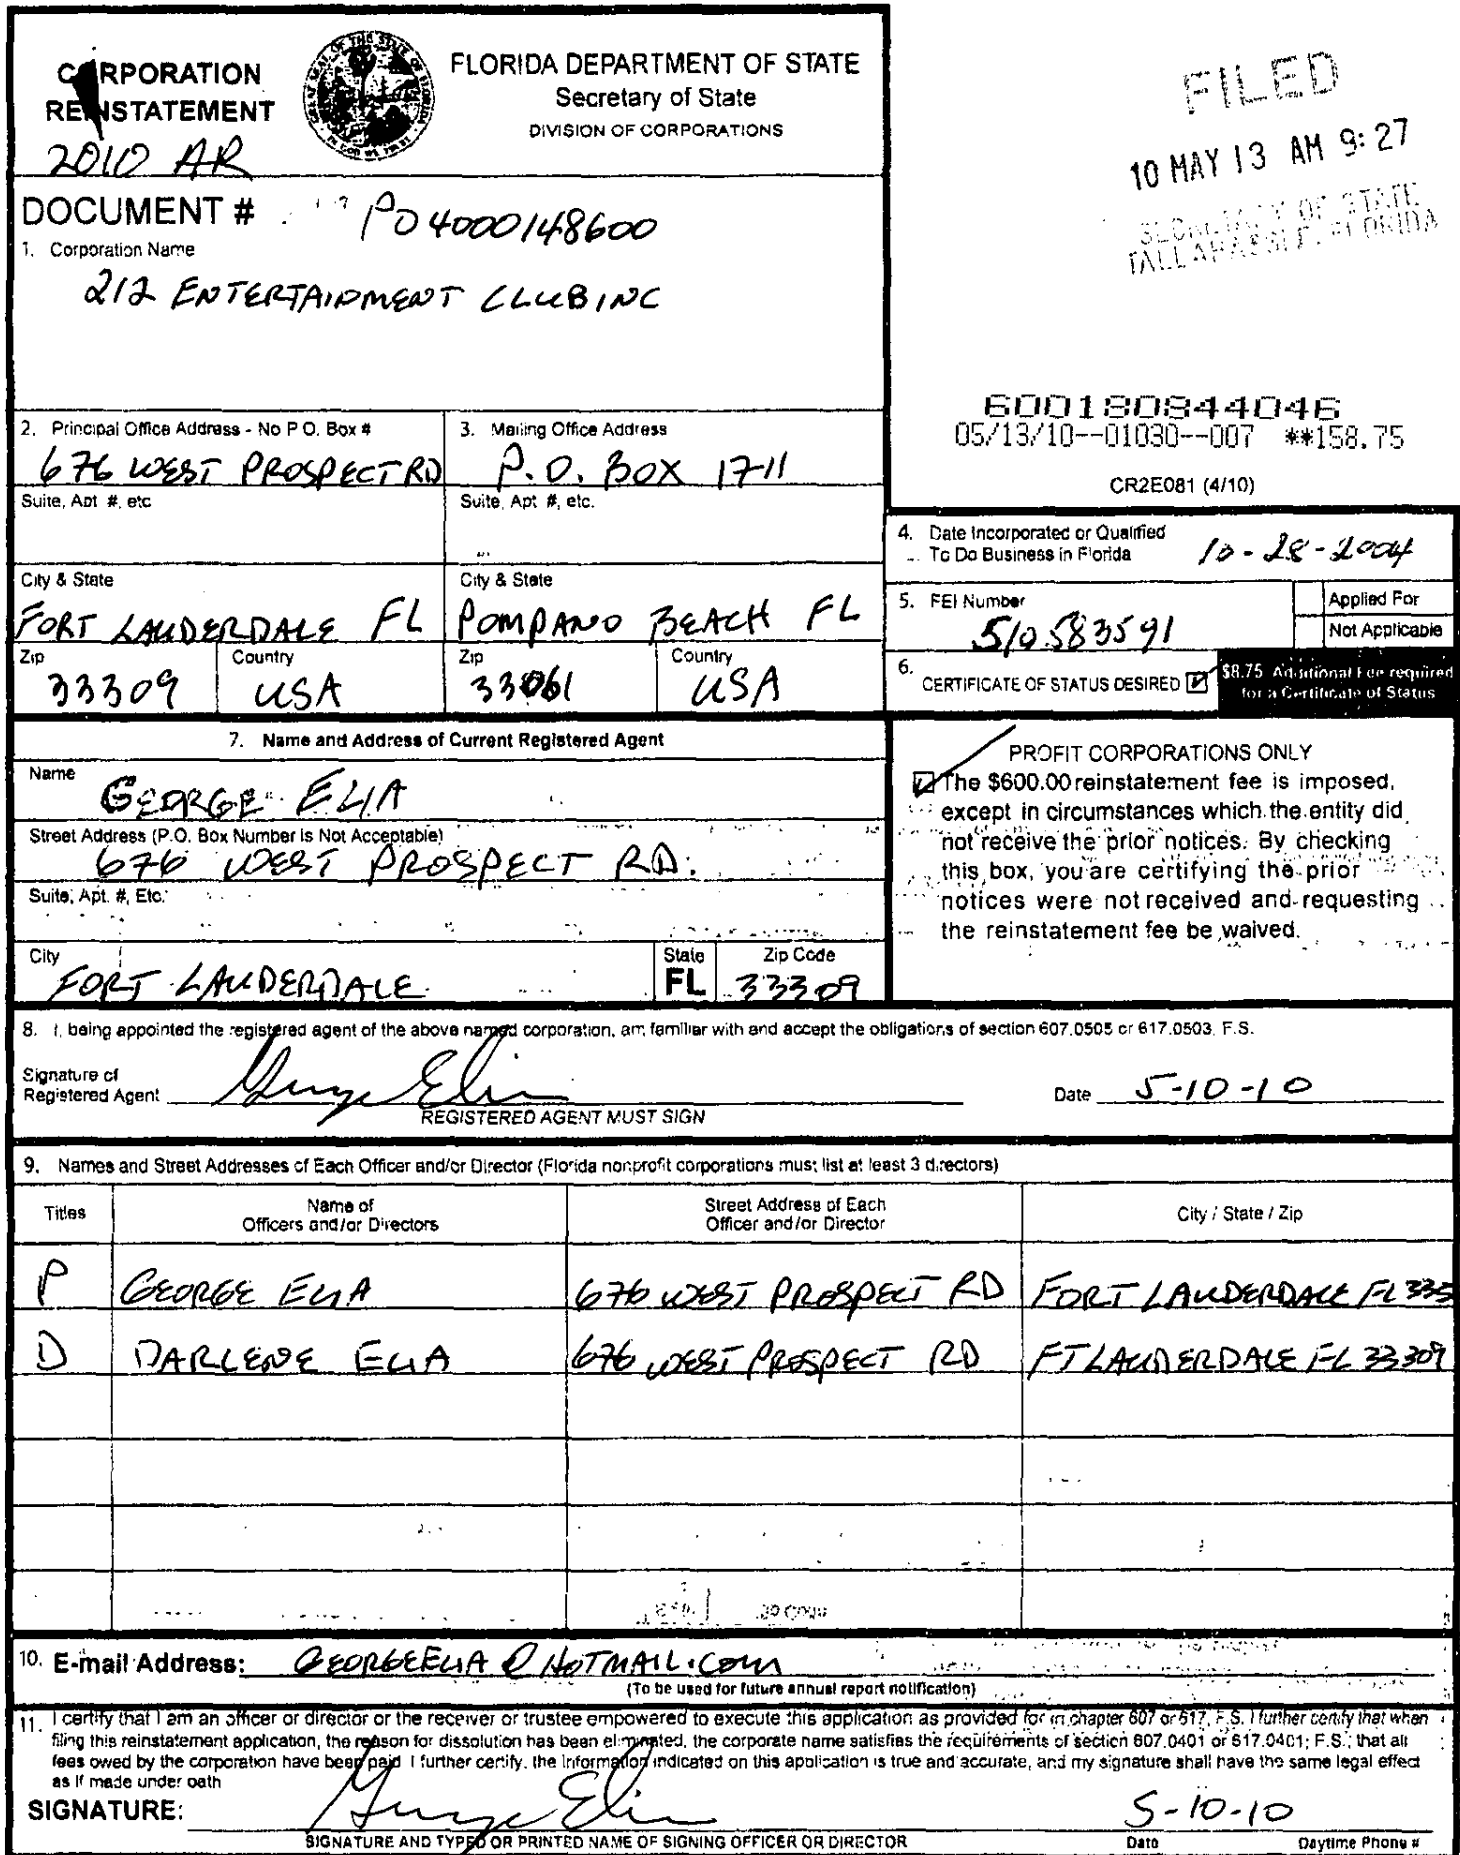 CORPORATION
REINSTATEMENT
2010 AR
FLORIDA DEPARTMENT OF STATE
Secretary of State
DIVISION OF CORPORATIONS
FILED
10 MAY 13 AM 9:27
SECRETARY OF STATE
TALLAHASSEE, FLORIDA
DOCUMENT # P04000148600
1. Corporation Name
212 ENTERTAINMENT CLUB INC
600180844046
05/13/10--01030--007 **158.75
CR2E081 (4/10)
2. Principal Office Address - No P O. Box #
676 WEST PROSPECT RD
Suite, Apt #, etc
City & State
FORT LAUDERDALE FL
Zip
33309
Country
USA
3. Mailing Office Address
P.O. BOX 1711
Suite, Apt #, etc.
City & State
POMPANO BEACH FL
Zip
33061
Country
USA
4. Date Incorporated or Qualified
To Do Business in Florida
10-28-2004
5. FEI Number
510583591
Applied For
Not Applicable
6. CERTIFICATE OF STATUS DESIRED
$8.75 Additional Fee required
for a Certificate of Status
7. Name and Address of Current Registered Agent
Name
GEORGE ELIA
Street Address (P.O. Box Number is Not Acceptable)
676 WEST PROSPECT RD.
Suite, Apt. #, Etc.
City
FORT LAUDERDALE
State
FL
Zip Code
33309
PROFIT CORPORATIONS ONLY
The $600.00 reinstatement fee is imposed,
except in circumstances which the entity did
not receive the prior notices. By checking
this box, you are certifying the prior
notices were not received and requesting
the reinstatement fee be waived.
8. I, being appointed the registered agent of the above named corporation, am familiar with and accept the obligations of section 607.0505 or 617.0503, F.S.
Signature of
Registered Agent George Elia
REGISTERED AGENT MUST SIGN
Date 5-10-10
9. Names and Street Addresses of Each Officer and/or Director (Florida nonprofit corporations must list at least 3 directors)
Titles
Name of
Officers and/or Directors
Street Address of Each
Officer and/or Director
City / State / Zip
P GEORGE ELIA 676 WEST PROSPECT RD FORT LAUDERDALE FL
D DARLENE ELIA 676 WEST PROSPECT RD FT LAUDERDALE FL 33309
10. E-mail Address: GEORGEELIA@HOTMAIL.COM
(To be used for future annual report notification)
11. I certify that I am an officer or director or the receiver or trustee empowered to execute this application as provided for in chapter 607 or 617, F.S. I further certify that when
filing this reinstatement application, the reason for dissolution has been eliminated, the corporate name satisfies the requirements of section 607.0401 or 617.0401, F.S., that all
fees owed by the corporation have been paid I further certify, the information indicated on this application is true and accurate, and my signature shall have the same legal effect
as if made under oath
SIGNATURE: George Elia
SIGNATURE AND TYPED OR PRINTED NAME OF SIGNING OFFICER OR DIRECTOR
5-10-10
Date
Daytime Phone #